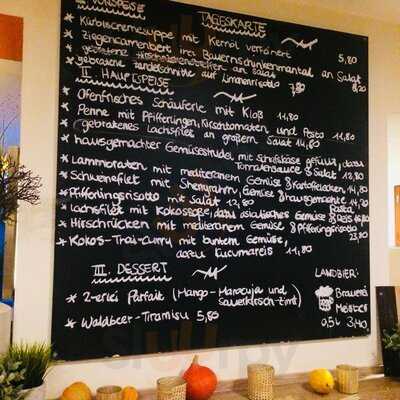 TAGESKARTE
I. VORSPEISE
* Kürbiscremesuppe mit Kernöl verfeinert 5,80
* Ziegencamenbert im Bauernschinkenmantel an Salat 8,20
* gebratene an Salat
gebratene auf Limonenrisotto 7,80
II. HAUPTSPEISE
* Ofenfrisches Schäuferle mit Kloß 11,80
* Penne mit Pfifferlingen, Kirschtomaten und Pesto 11,80
* gebratenes Lachsfilet an großem Salat 14,80
* hausgemachter Gemüsestrudel mit Schafskäse gefüllt, dazu
Tomatensauce & Salat 12,80
* Lammbraten mit mediteranem Gemüse & Kartoffelecken, 14,80
* Schweinefilet mit Sherryrahm, Gemüse & hausgemachte Pasta 14,20
* Pfifferlingsrisotto mit Salat 12,80
* Lachsfilet mit Kokossoße, dazu asiatisches Gemüse & Reis 16,80
* Hirschrücken mit mediteranem Gemüse & Pfifferlingsrisotto 23,80
* Kokos-Thai-Curry mit buntem Gemüse,
dazu 11,80
III. DESSERT
* 2-erlei Parfait (Mango-Maracuja und
Sauerkirsch-Zimt)
* Waldbeer-Tiramisu 5,80
LANDBIER:
Brauerei
Meister
0,5l 3,40
sluurpy